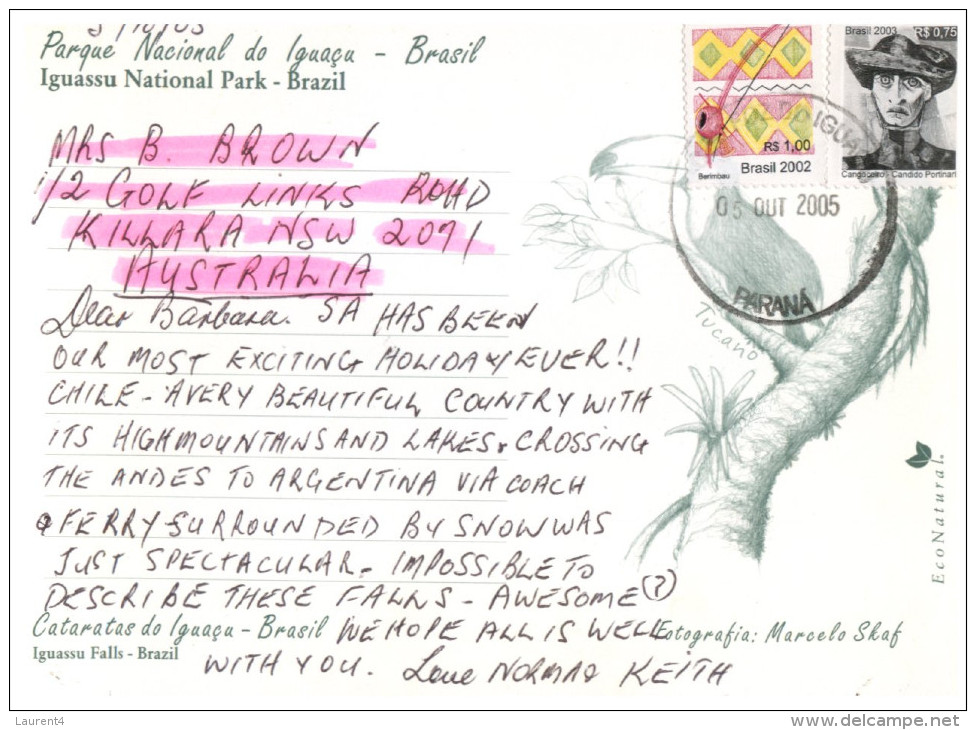 5/10/05
Parque Nacional do Iguaçu - Brasil
Iguassu National Park - Brazil
Brasil 2003 R$ 0,75
Cangaceiro - Candido Portinari
R$ 1,00
Brasil 2002
Berimbau
05 OUT 2005
PARANÁ
MRS B. BROWN
1/2 GOLF LINKS ROAD
KILLARA NSW 2071
AUSTRALIA
Dear Barbara. SA HAS BEEN
OUR MOST EXCITING HOLIDAY EVER!!
CHILE - A VERY BEAUTIFUL COUNTRY WITH
ITS HIGH MOUNTAINS AND LAKES & CROSSING
THE ANDES TO ARGENTINA VIA COACH
& FERRY - SURROUNDED BY SNOW WAS
JUST SPECTACULAR - IMPOSSIBLE TO
DESCRIBE THESE FALLS - AWESOME (?)
WE HOPE ALL IS WELL
WITH YOU. Love NORMA & KEITH
Tucano
EcoNatural
Cataratas do Iguaçu - Brasil
Iguassu Falls - Brazil
Fotografia: Marcelo Skaf
Laurent4
delcampe.net